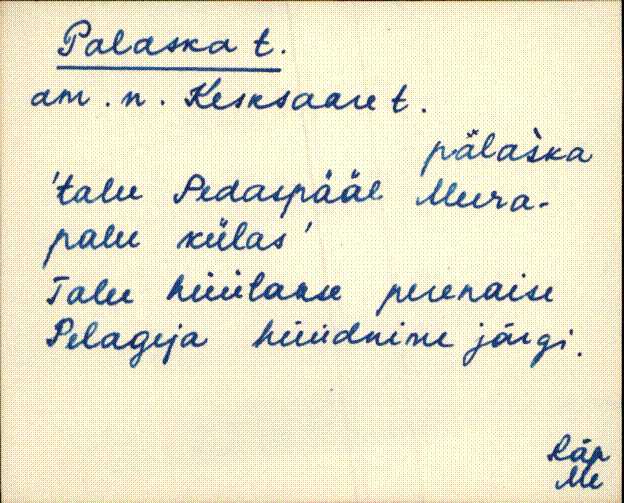 Palaska t.
am. n. Kesksaare t.
pälaška
'talu Pedaspääl Meera-
palu külas'
Talu hüütakse perenaise
Pelageja hüüdnime järgi.
Räp
Me